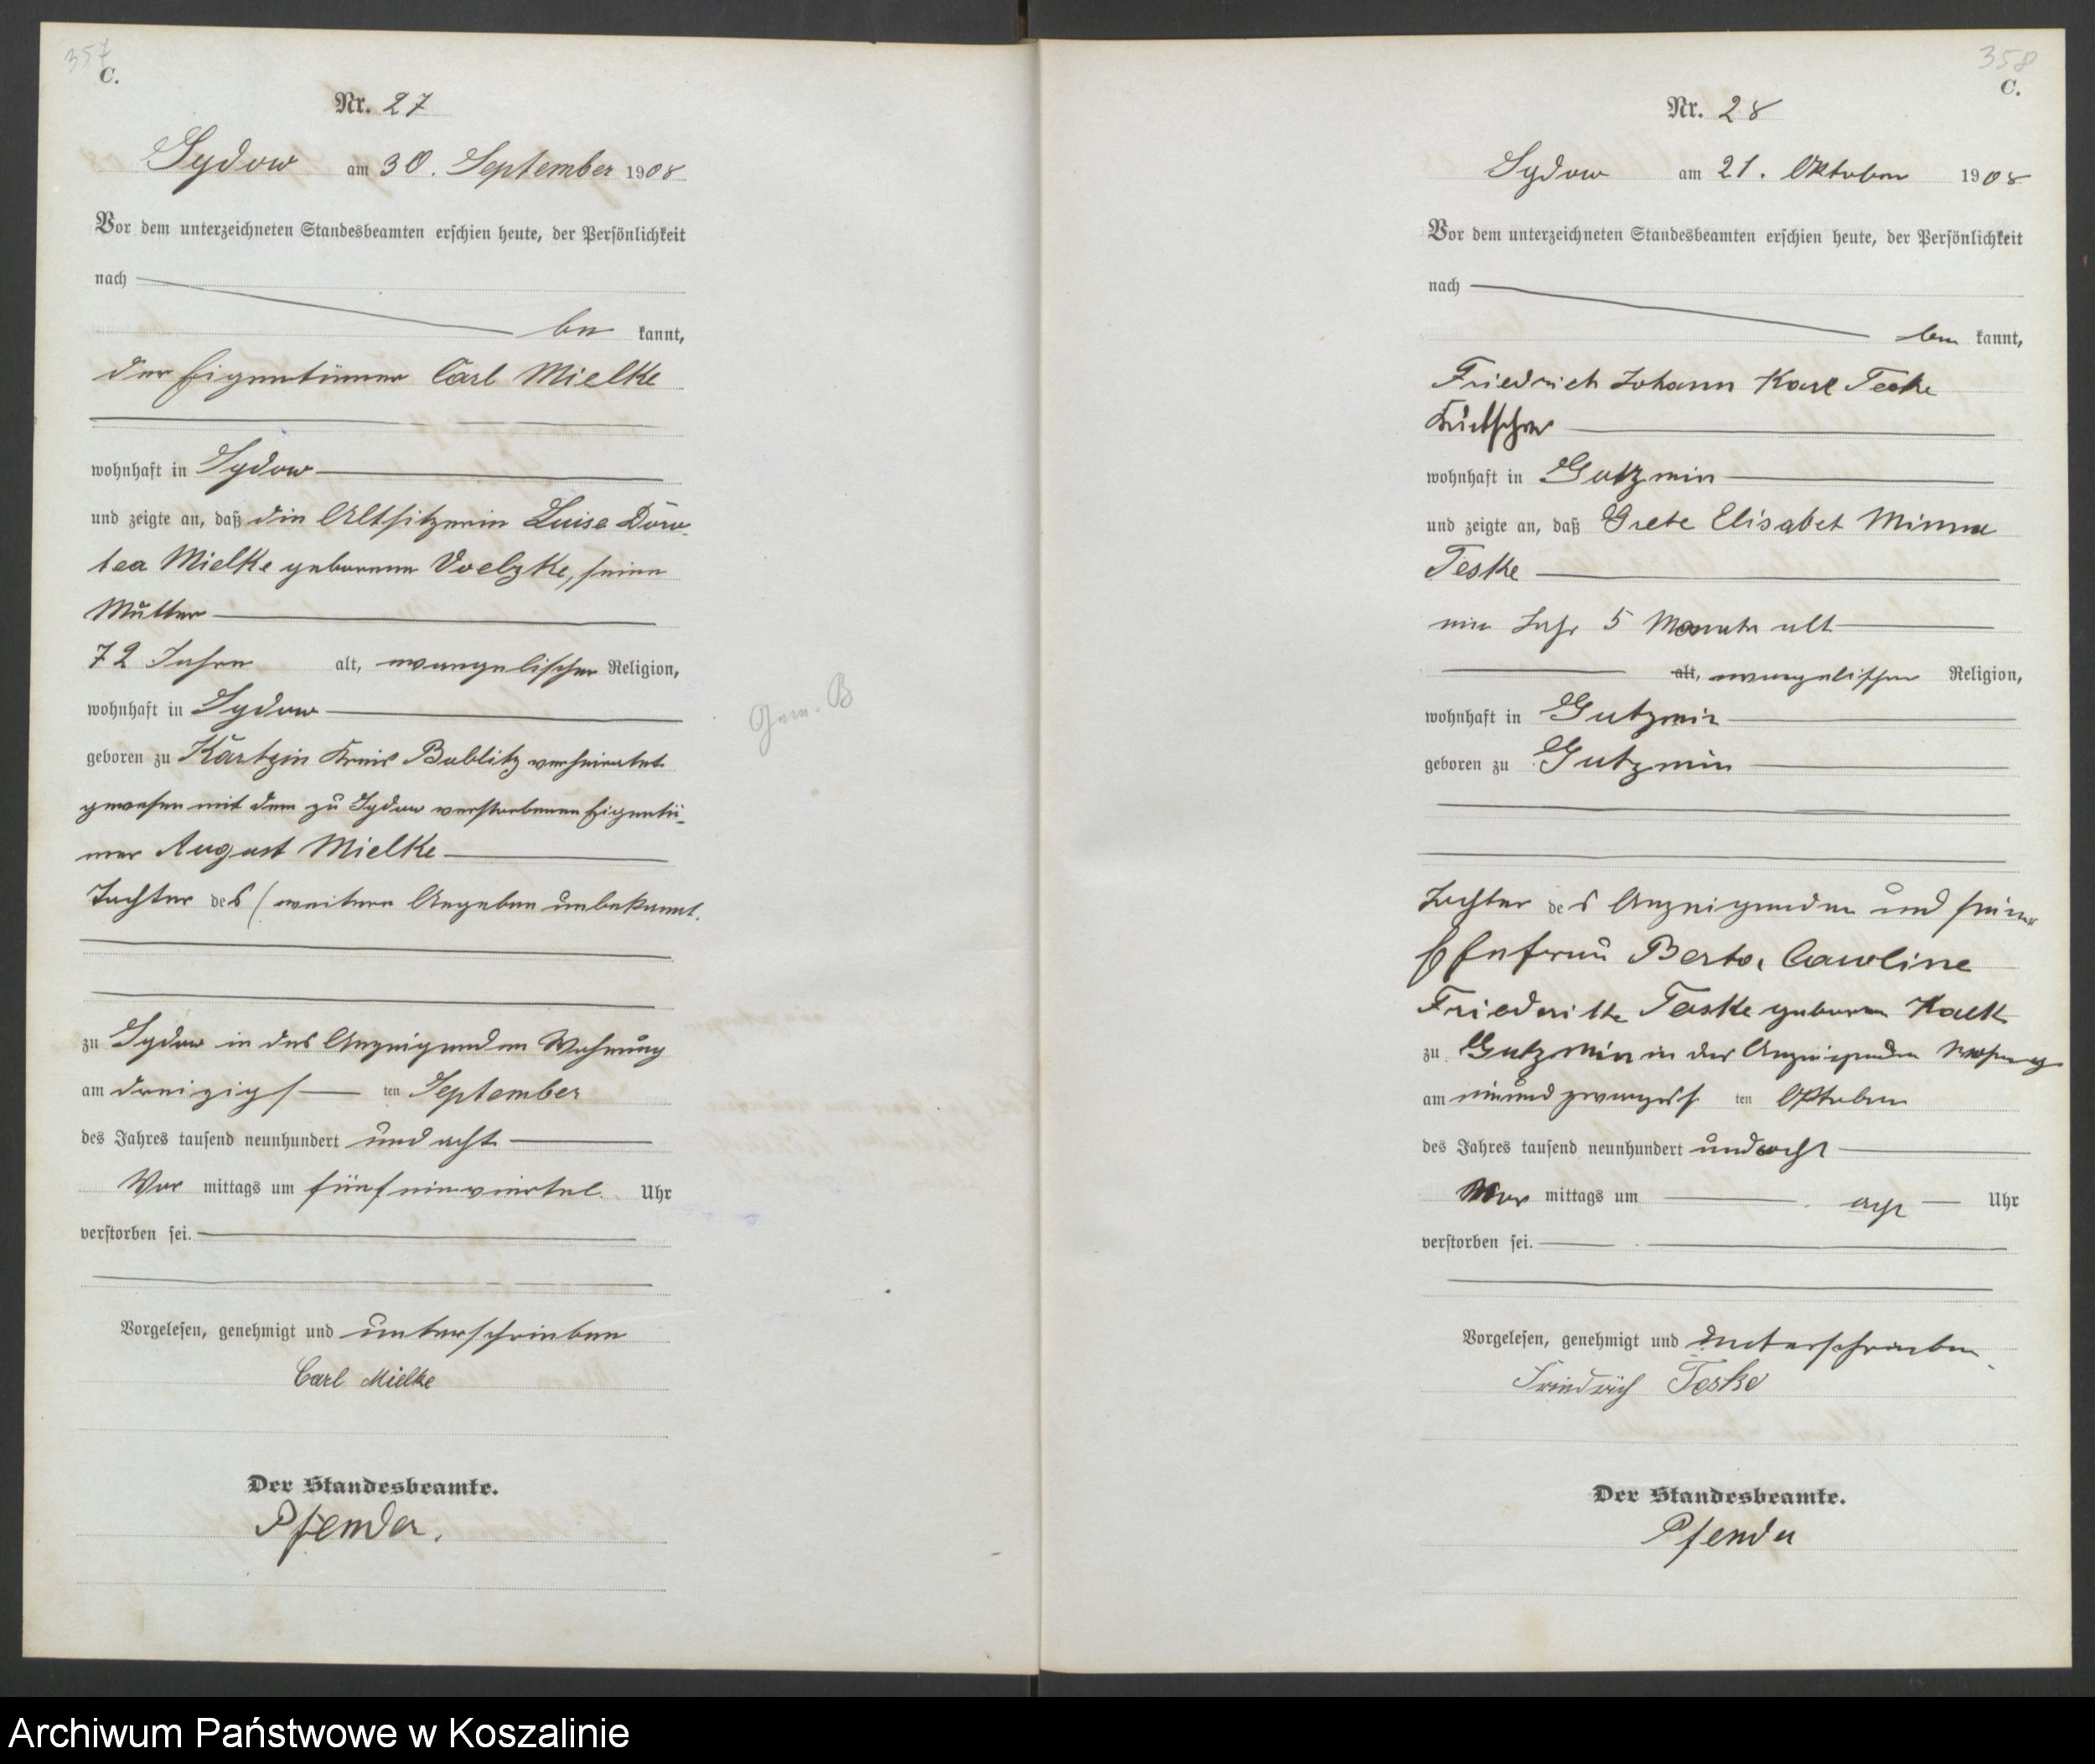 357
C.
Nr. 27
Sydow am 30. September 1908
Vor dem unterzeichneten Standesbeamten erschien heute, der Persönlichkeit
nach
be kannt,
der Eigentümer Carl Mielke
wohnhaft in Sydow
und zeigte an, daß die Altsitzerin Luise Doro-
tea Mielke geborene Voelzke, seine
Mutter
72 Jahre alt, evangelischer Religion,
wohnhaft in Sydow
geboren zu Kartzin Kreis Bublitz verheiratet
gewesen mit dem zu Sydow verstorbenen Eigentü-
mer August Mielke
Tochter des / weitere Angaben unbekannt.
zu Sydow in des Anzeigenden Wohnung
am dreizigs ten September
des Jahres tausend neunhundert und acht
Vor mittags um fünf einviertel Uhr
verstorben sei.
Vorgelesen, genehmigt und unterschrieben
Carl Mielke
Der Standesbeamte.
Pfender.
358
C.
Nr. 28
Sydow am 21. Oktober 1908
Vor dem unterzeichneten Standesbeamten erschien heute, der Persönlichkeit
nach
be kannt,
Friedrich Johann Karl Teske
Kutscher
wohnhaft in Gutzmin
und zeigte an, daß Grete Elisabet Minna
Teske
ein Jahr 5 Monate alt
alt, evangelischer Religion,
wohnhaft in Gutzmin
geboren zu Gutzmin
Tochter des Anzeigenden und seiner
Ehefrau Berta Caroline
Friederike Teske geboren
zu Gutzmin in des Anzeigenden Wohnung
am einundzwanzigs ten Oktober
des Jahres tausend neunhundert undacht
Vor mittags um acht Uhr
verstorben sei.
Vorgelesen, genehmigt und unterschrieben
Friedrich Teske
Der Standesbeamte.
Pfender
Archiwum Państwowe w Koszalinie